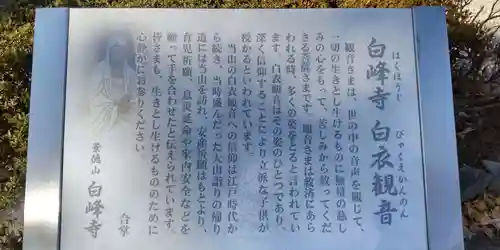 はくほうじ
白峰寺 白衣観音
びゃくえかんのん
観音さまは、世の中の音声を観じて、
一切の生きとし生けるものに無量の慈し
みの心をもって、苦しみから救ってくだ
さる菩薩さまです。観音さまは救済にあら
われる時、多くの姿をとると言われてい
ます。白衣観音はその姿のひとつであり、
深く信仰することにより立派な子供が
授かるといわれています。
当山の白衣観音への信仰は江戸時代か
ら続き、当時盛んだった大山詣りの帰り
道には当山を訪れ、安産祈願はもとより、
育児祈願、息災延命や家内安全などを
願って手を合わせたと伝えられています。
皆さまも、生きとし生けるもののために
心静かにお参りください。
景徳山 白峰寺
合掌